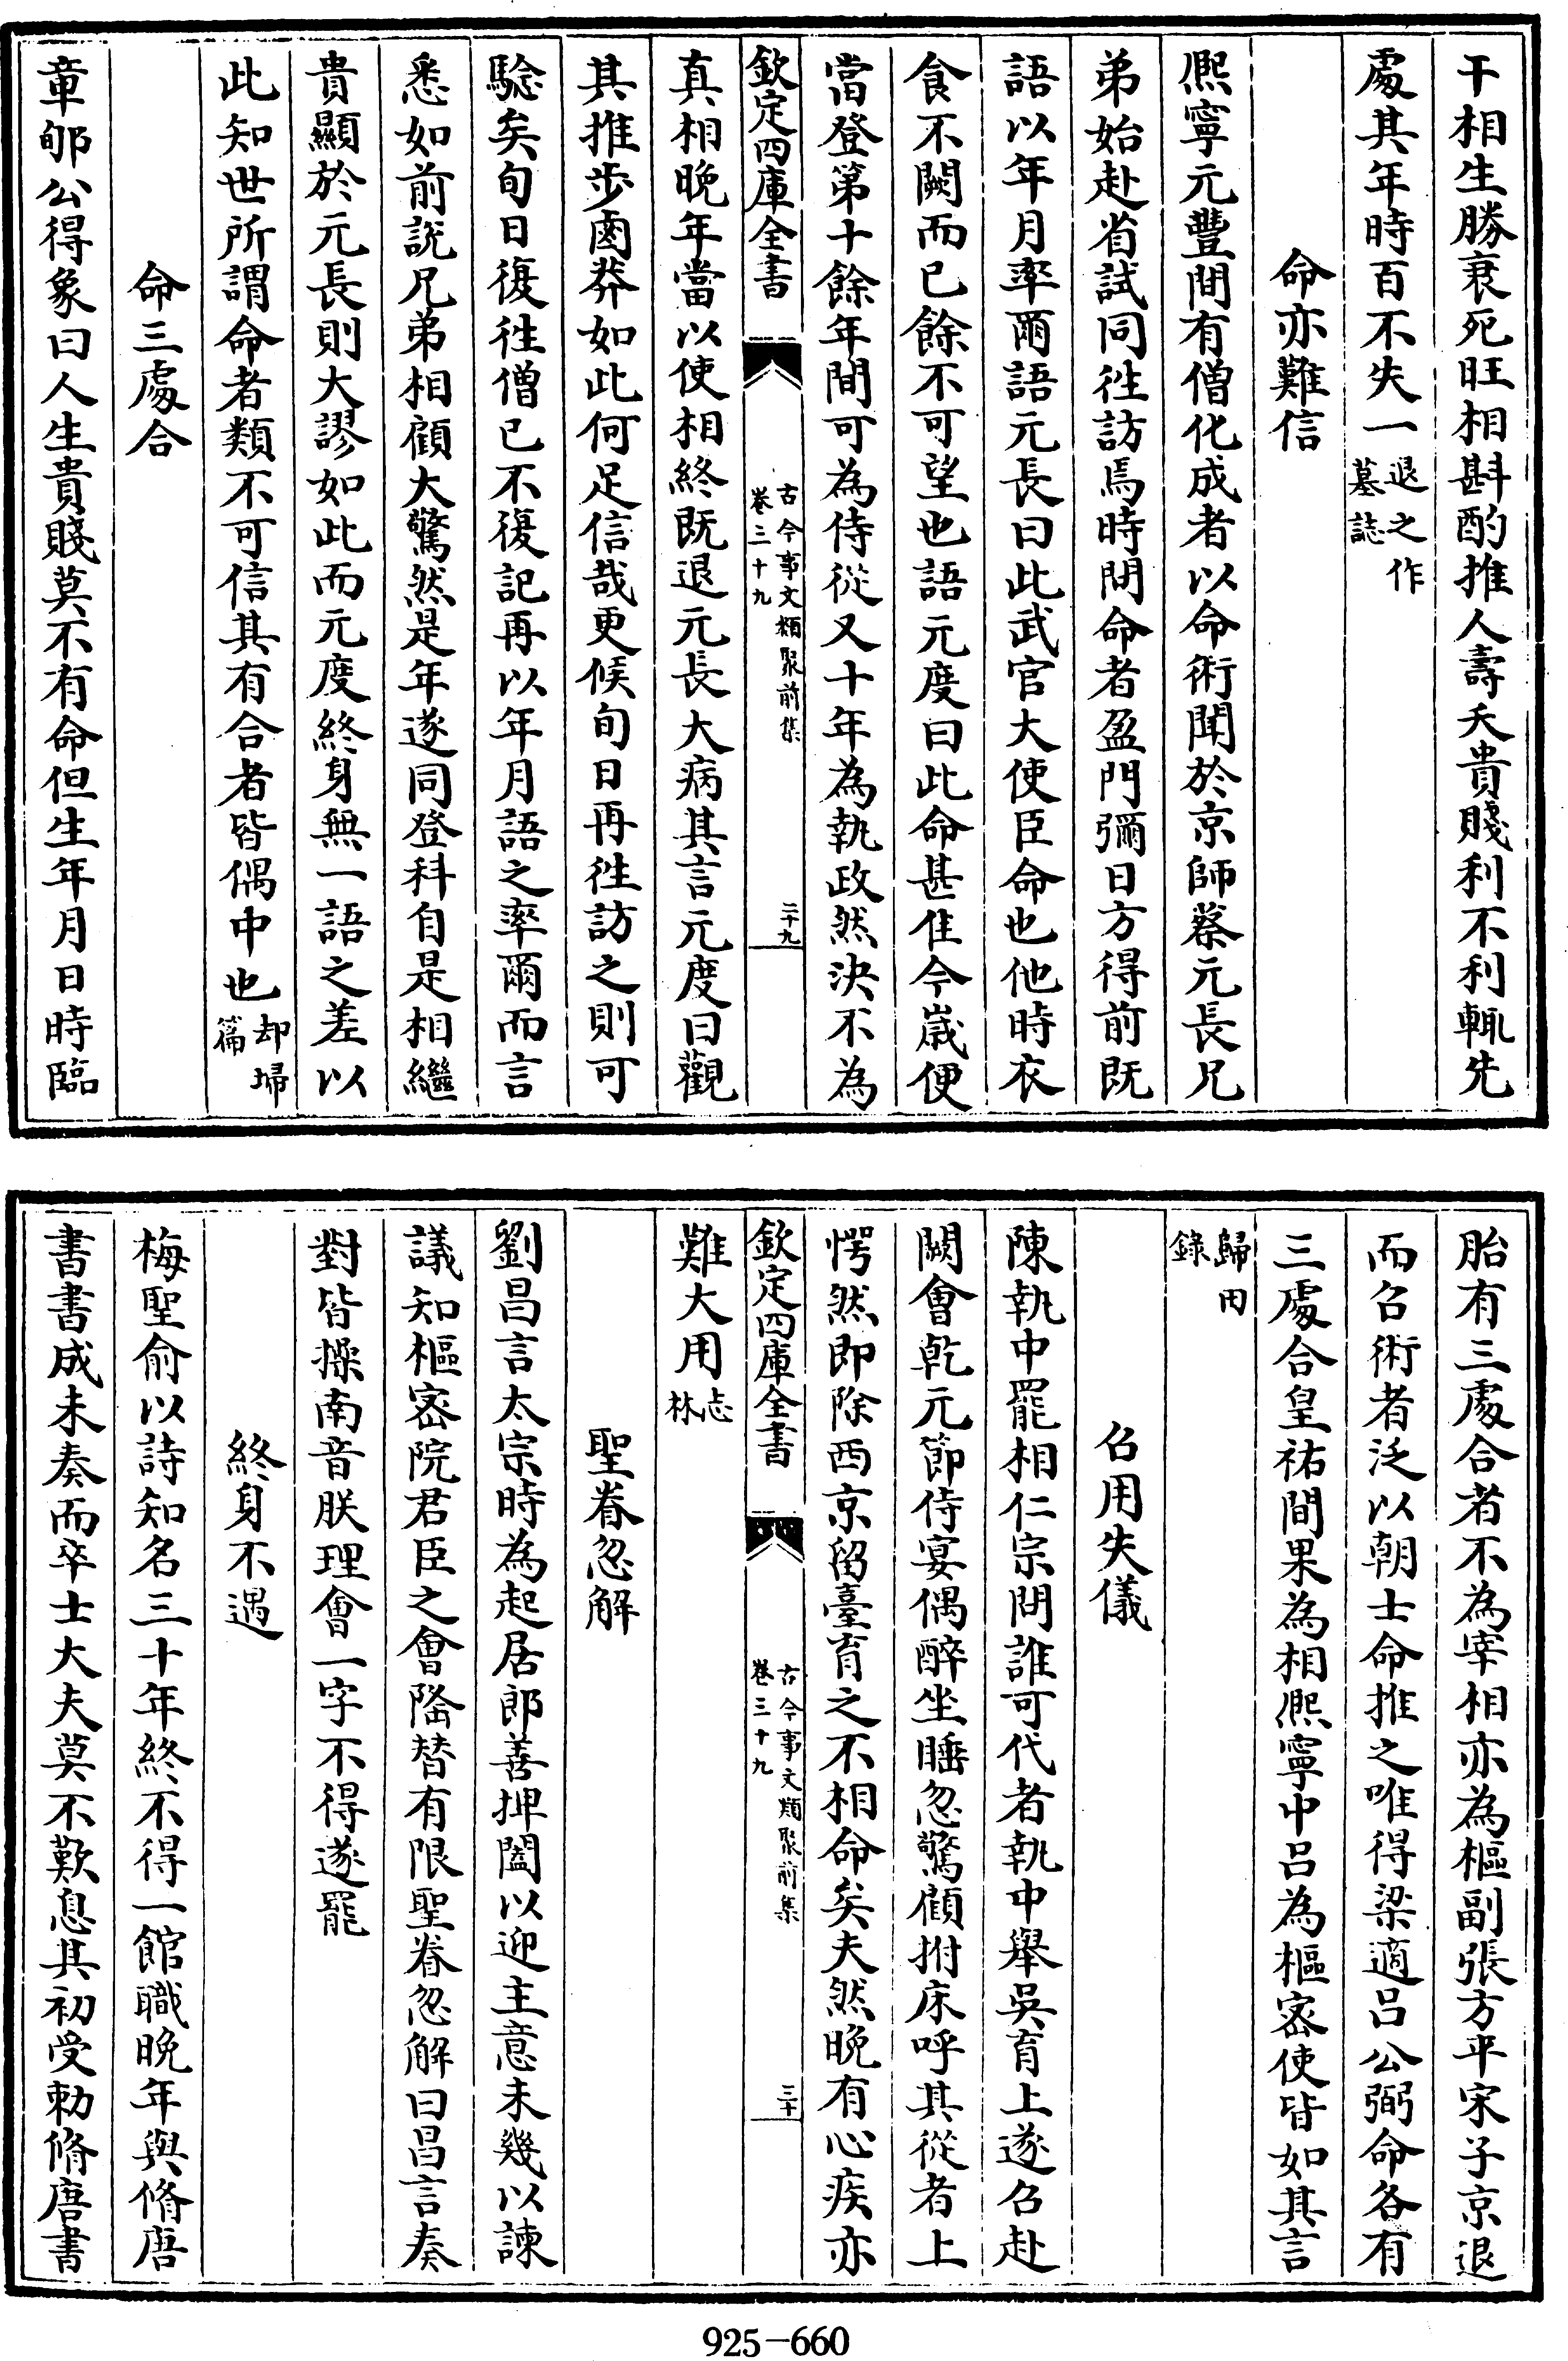 干相生勝衰死旺相斟酌推人壽夭貴賤利不利輒先
處其年時百不失一退之作墓誌
命亦難信
熈寧元豐間有僧化成者以命術聞於京師蔡元長兄
弟始赴省試同徃訪焉時問命者盈門彌日方得前既
語以年月率爾語元長曰此武官大使臣命也他時衣
食不闕而已餘不可望也語元度曰此命甚佳今嵗便
當登第十餘年間可為侍從又十年為執政然決不為
欽定四庫全書
古今事文類聚前集
卷三十九
二十九
真相晚年當以使相終既退元長大病其言元度曰觀
其推步鹵莽如此何足信哉更候旬日再徃訪之則可
驗矣旬日復徃僧已不復記再以年月語之率爾而言
悉如前說兄弟相顧大驚然是年遂同登科自是相繼
貴顯於元長則大謬如此而元度終身無一語之差以
此知世所謂命者類不可信其有合者皆偶中也却埽篇
命三處合
章郇公得象曰人生貴賤莫不有命但生年月日時臨
胎有三處合者不為宰相亦為樞副張方平宋子京退
而召術者泛以朝士命推之唯得梁適吕公弼命各有
三處合皇祐間果為相熈寧中吕為樞密使皆如其言
歸田錄
召用失儀
陳執中罷相仁宗問誰可代者執中舉吳育上遂召赴
闕會乾元節侍宴偶醉坐睡忽驚顧拊床呼其從者上
愕然即除西京留臺育之不相命矣夫然晚有心疾亦
欽定四庫全書
古今事文類聚前集
卷三十九
三十
難大用志林
聖眷忽解
劉昌言太宗時為起居郎善押闔以迎主意未幾以諫
議知樞密院君臣之會隆替有限聖眷忽解曰昌言奏
對皆操南音朕理會一字不得遂罷
終身不遇
梅聖俞以詩知名三十年終不得一館職晚年與脩唐
書書成未奏而卒士大夫莫不歎息其初受勅脩唐書
925-660